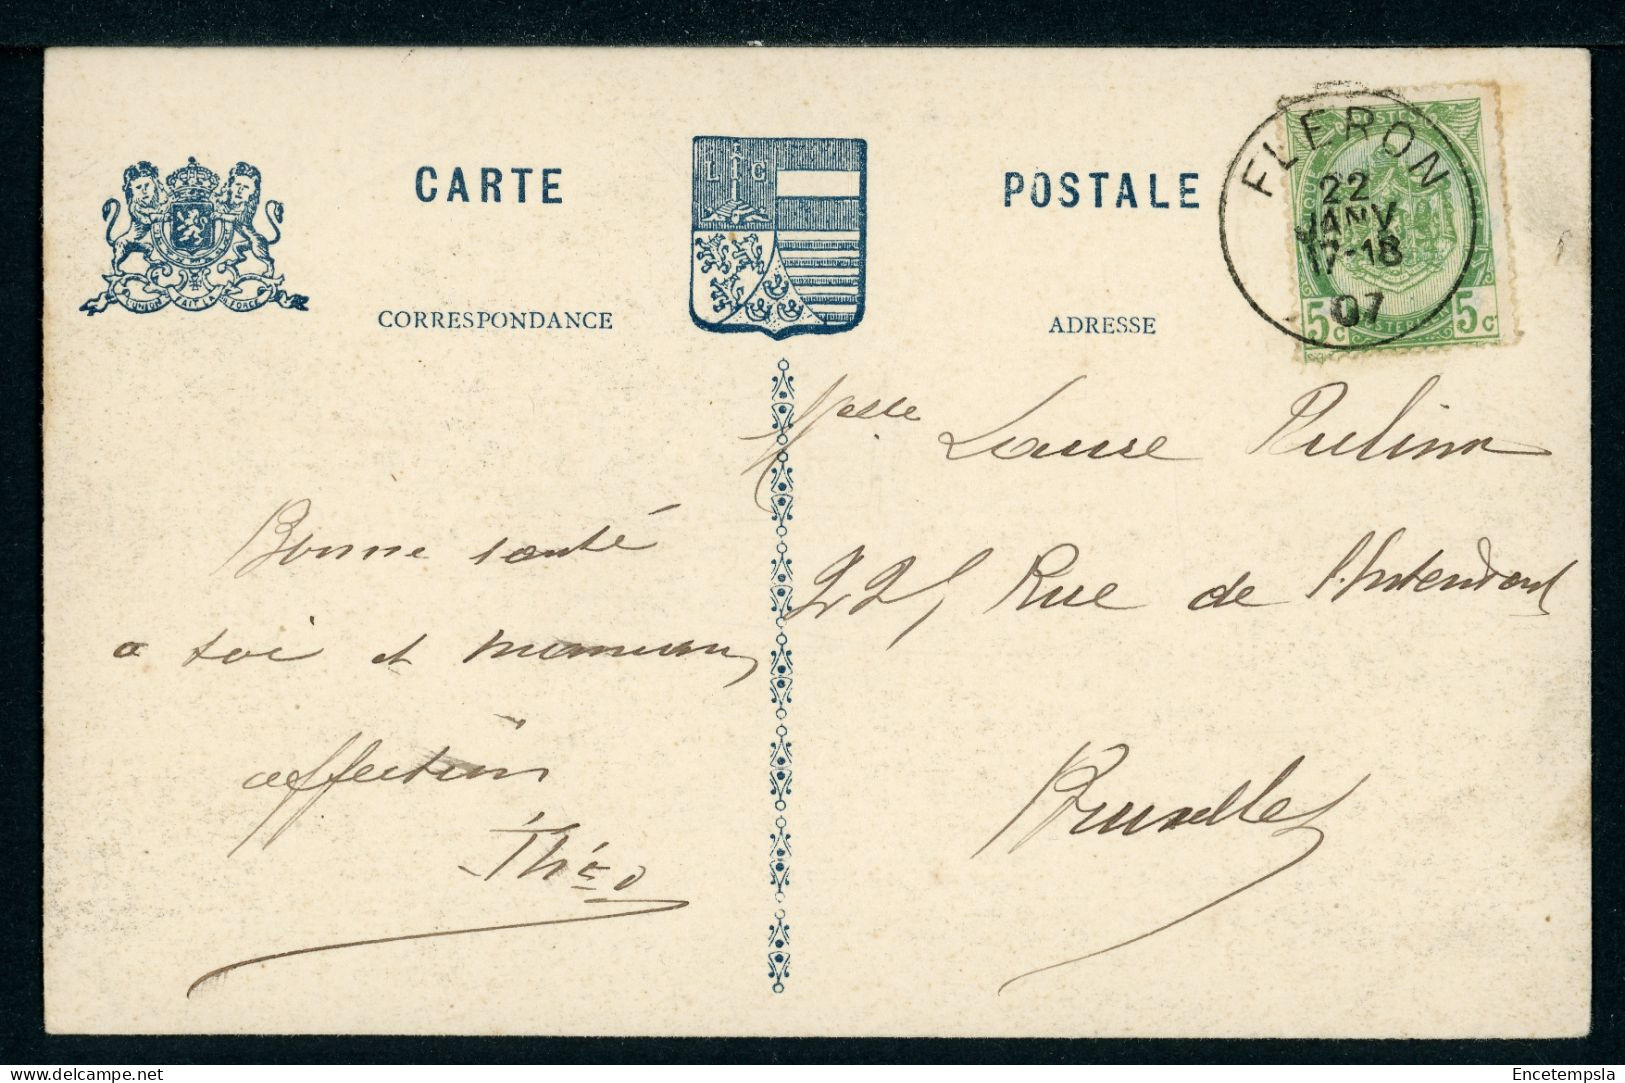 CARTE POSTALE
L G
L'UNION FAIT LA FORCE
CORRESPONDANCE
ADRESSE
FLERON
22
JANV
17-18
07
POSTES
5c 5c
Melle Louise
225 Rue de l'Intendant
Bruxelles
Bonne santé
a toi et maman
affection
Théo
delcampe.net
Encetempsla